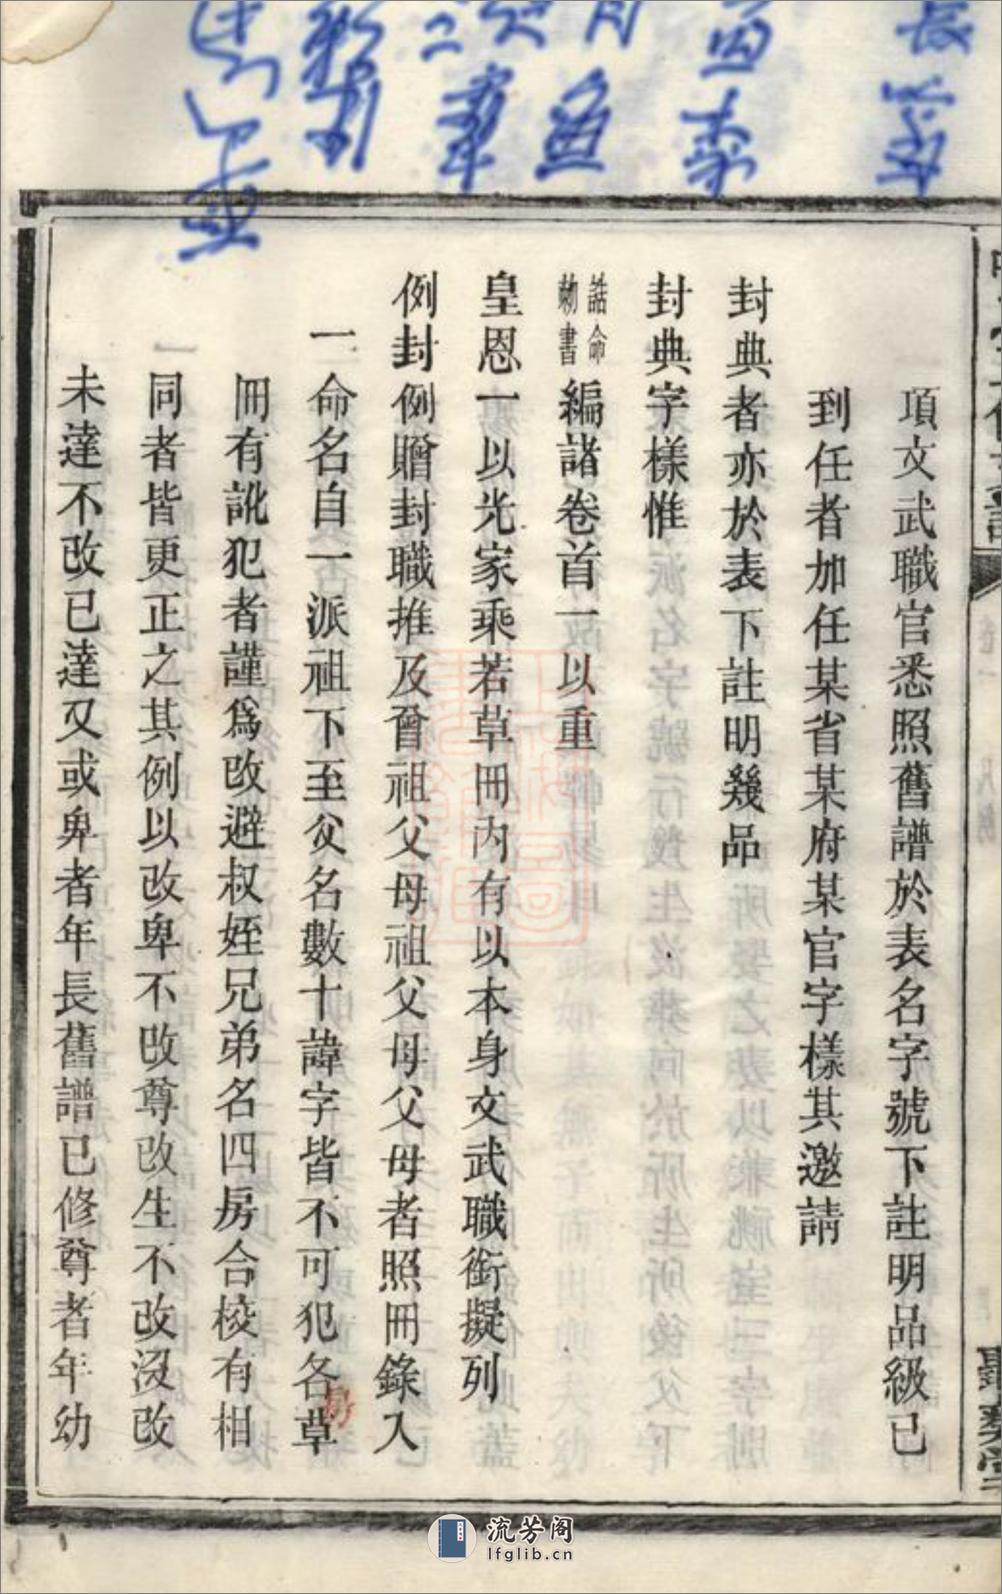 項文武職官悉照舊譜於表名字號下註明品級已
到任者加任某省某府某官字樣其邀請
封典者亦於表下註明幾品
封典字樣惟
誥命
勅書
編諸卷首一以重
皇恩一以光家乘若草冊內有以本身文武職銜擬列
例封例贈封職推及曾祖父母祖父母父母者照冊錄入
一命名自一派祖下至父名數十諱字皆不可犯各草
冊有訛犯者謹為改避叔姪兄弟名四房合校有相
同者皆更正之其例以改卑不改尊改生不改沒改
未達不改已達又或卑者年長舊譜已修尊者年幼
流芳阁
lfglib.cn